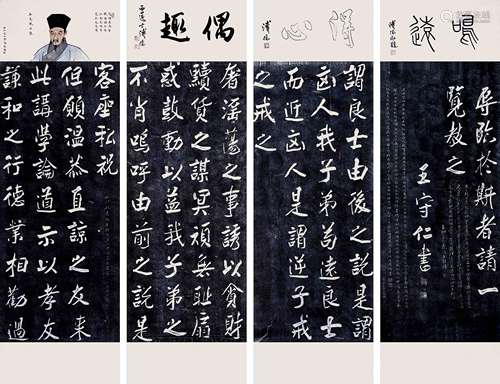 客座私祝
但願溫恭直諒之友來
此講學論道示以孝友
謙和之行德業相勸過
偶趣
奢淫蕩之事誘以貪財
黷貨之謀冥頑無恥扇
惑鼓動以益我子弟之
不肖嗚呼由前之說是
得心
謂良士由後之說是謂
凶人我子弟苟遠良士
而近凶人是謂逆子戒
之戒之
鳴遠
辱臨於斯者請一
覽教之
王守仁書